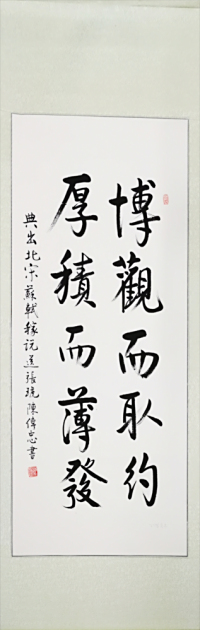 博觀而取約
厚積而薄發
典出北宋蘇軾稼說送張琥 陳偉忠書